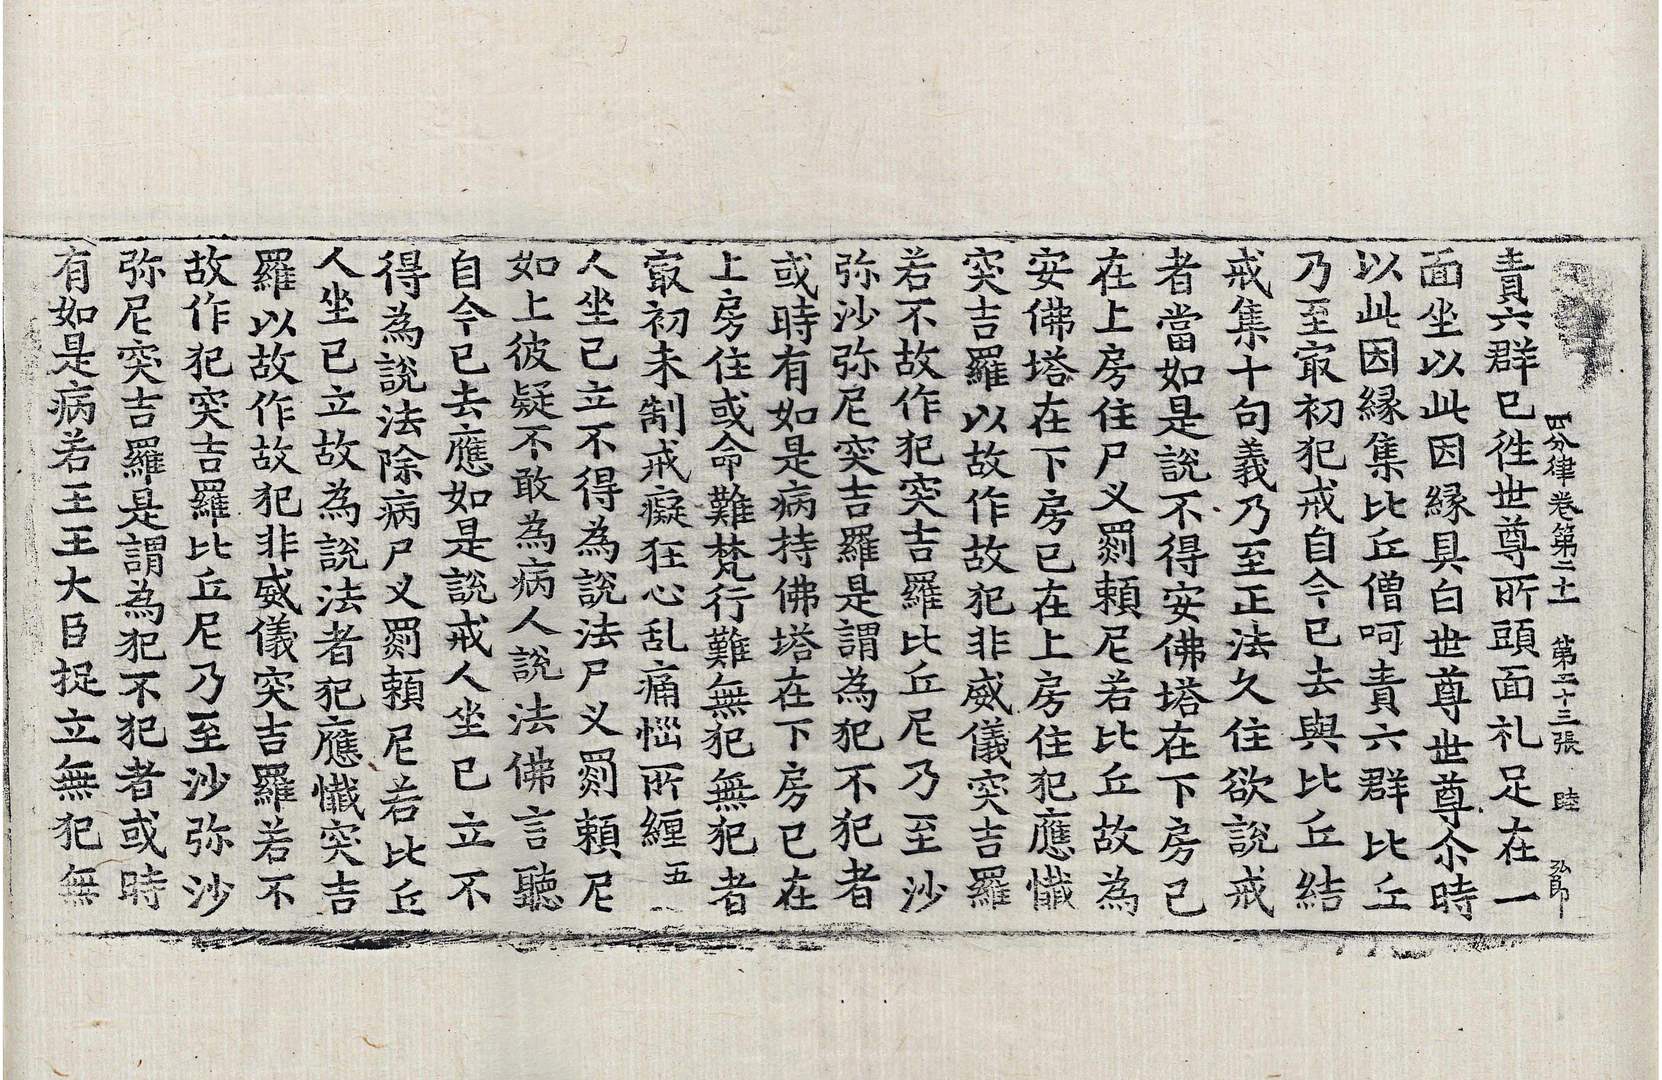 四分律卷第二十一 第二十三張 睦
責六群已徃世尊所頭面礼足在一
面坐以此因縁具白世尊世尊尒時
以此因縁集比丘僧呵責六群比丘
乃至㝡初犯戒自今已去與比丘結
戒集十句義乃至正法久住欲說戒
者當如是說不得安佛塔在下房已
在上房住尸叉罽賴尼若比丘故為
安佛塔在下房已在上房住犯應懴
突吉羅以故作故犯非威儀突吉羅
若不故作犯突吉羅比丘尼乃至沙
弥沙弥尼突吉羅是謂為犯不犯者
或時有如是病持佛塔在下房已在
上房住或命難梵行難無犯無犯者
㝡初未制戒癡狂心乱痛惱所纏 五
人坐已立不得為說法尸叉罽賴尼
如上彼疑不敢為病人說法佛言聽
自今已去應如是說戒人坐已立不
得為說法除病尸叉罽賴尼若比丘
人坐已立故為說法者犯應懴突吉
羅以故作故犯非威儀突吉羅若不
故作犯突吉羅比丘尼乃至沙弥沙
弥尼突吉羅是謂為犯不犯者或時
有如是病若王王大臣捉立無犯無